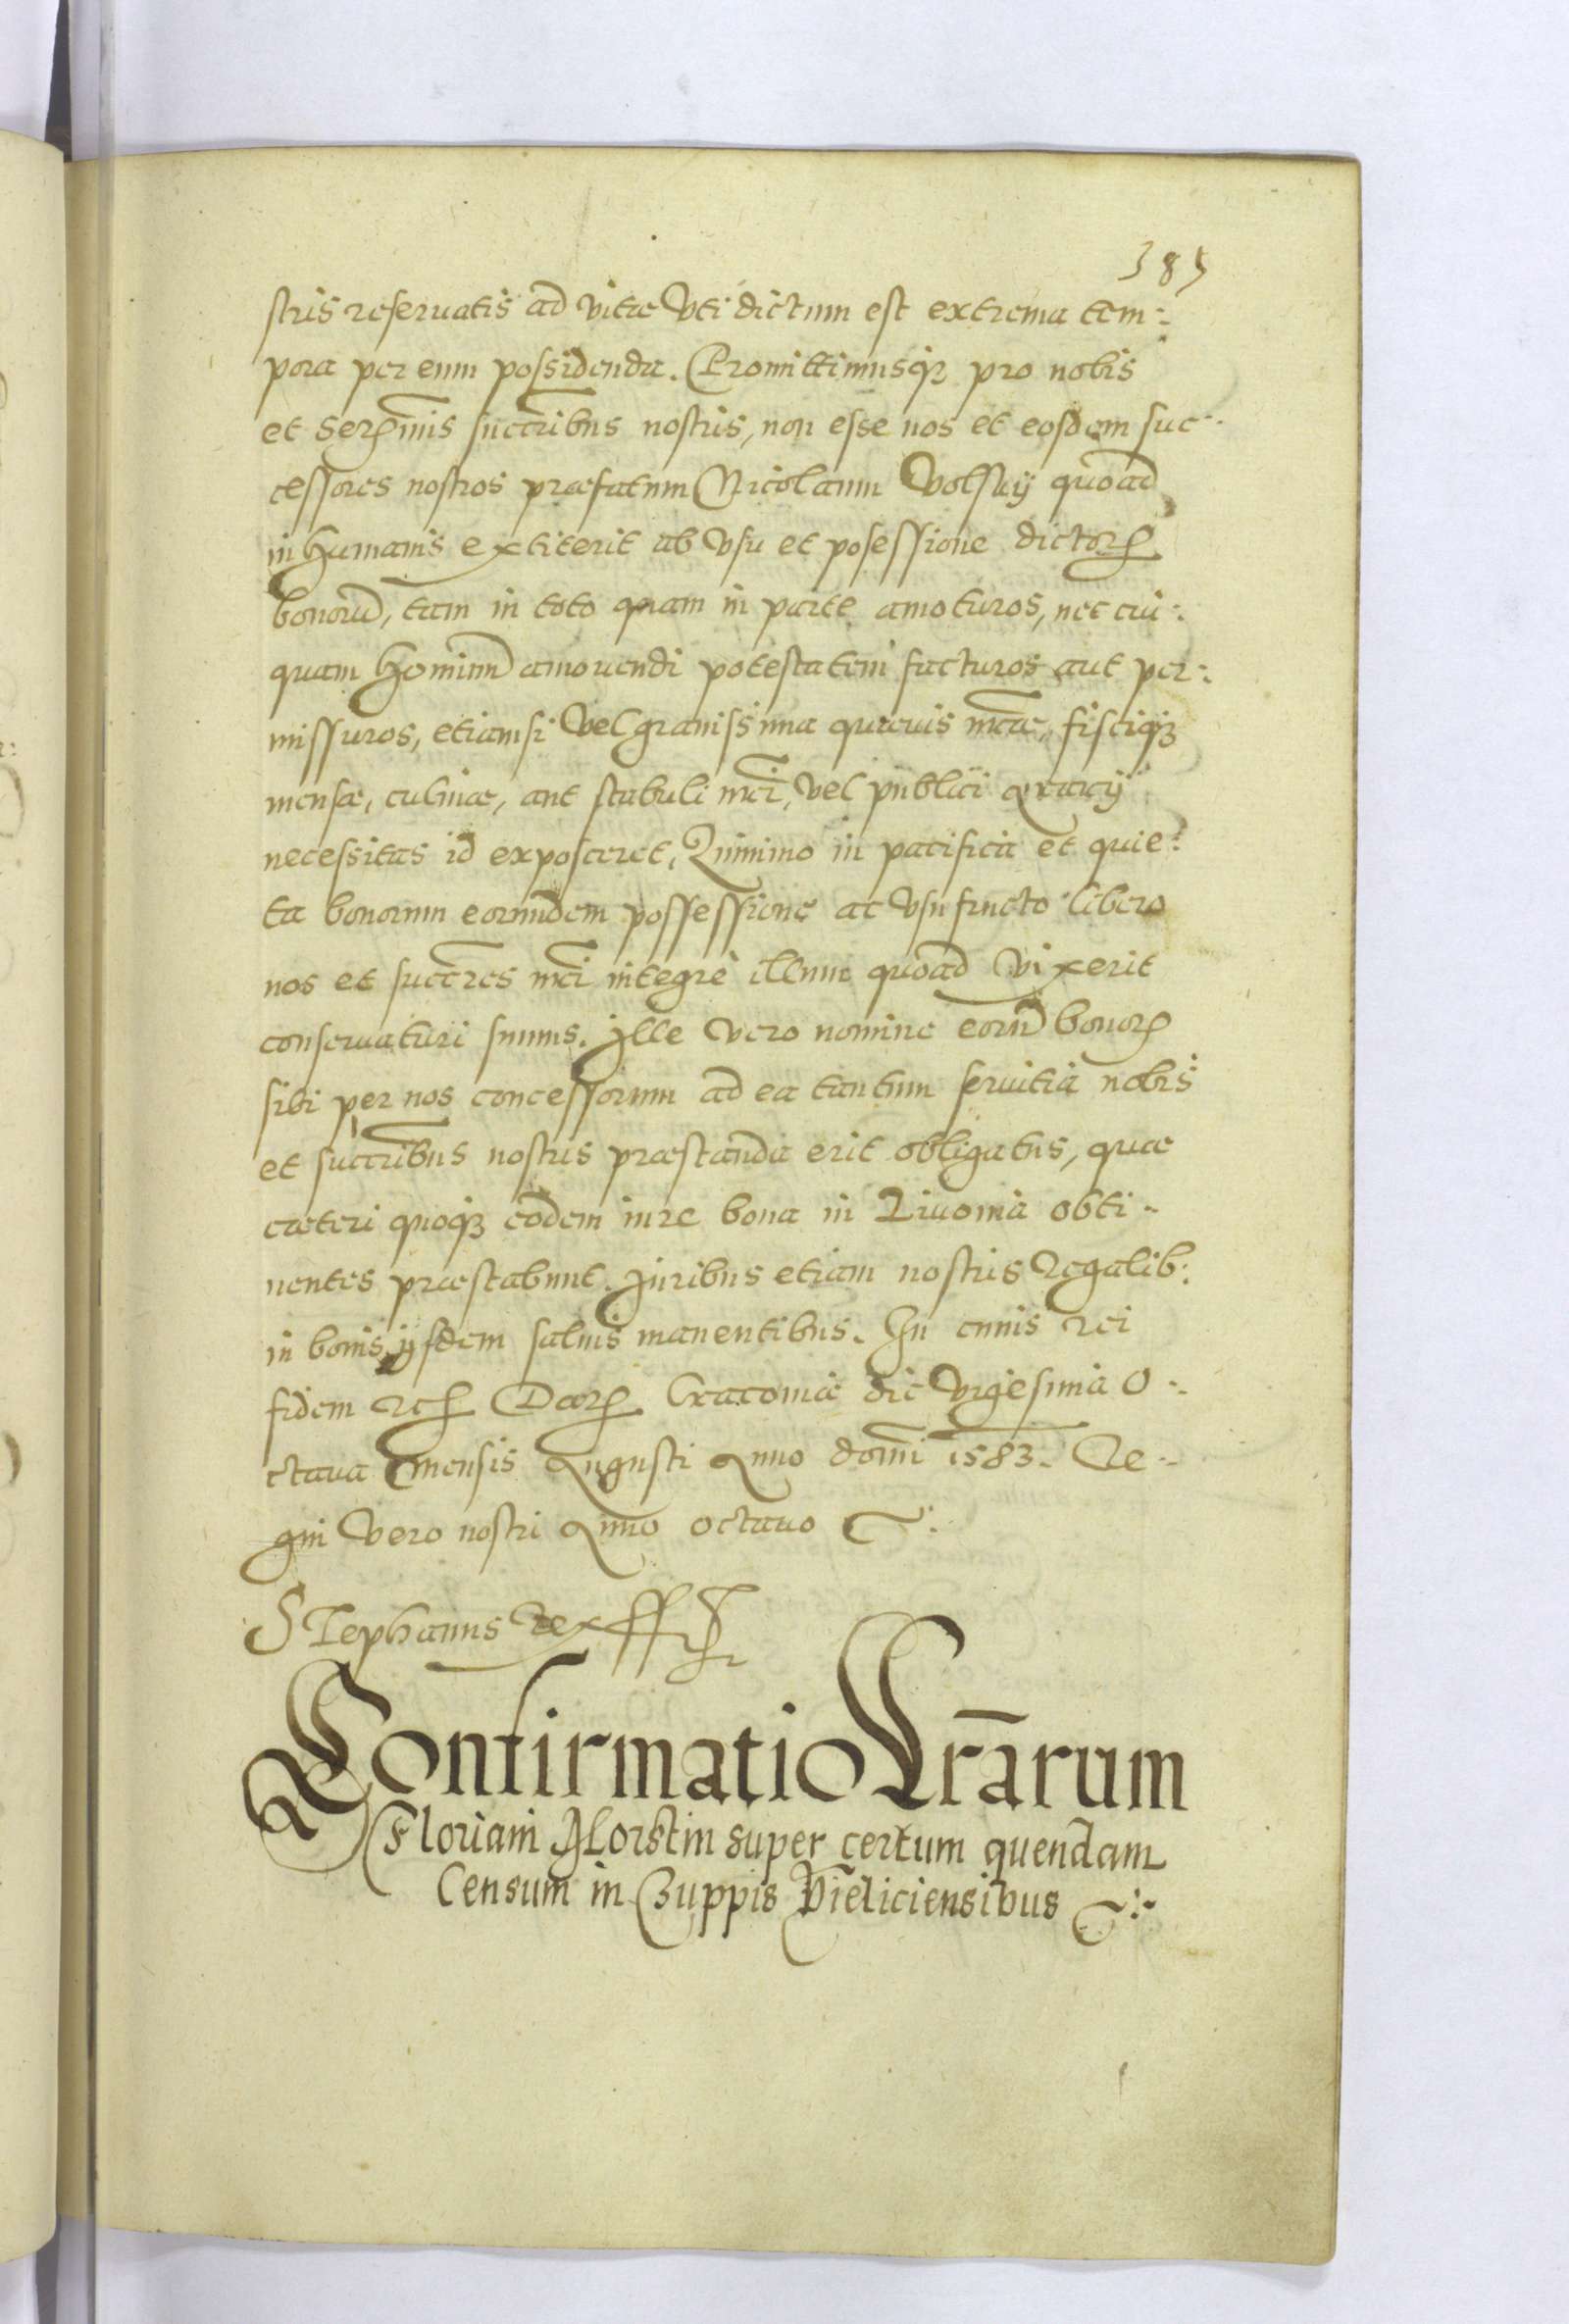 385
stris reseruatis ad vitae vti dictum est extrema tem:
pora per eum possidenda. Promittimusq3 pro nobis
et Serenmis succribus nostris, non esse nos et eosdem suc
cessores nostros praefatum Nicolaum Wolsky quoad
in humanis extiterit ab vsu et posessione dictor
bonorū, tam in toto quam in parte amoturos, nec cui:
quam hominū amouendi potestatem facturos aut per:
missuros, etiamsi vel grauissima quaeuis nrae, fisciq3
mensae, culinae, aut stabuli nri, vel publici aerarij
necessitas id exposceret, Quinimo in pacifica et quie:
ta bonorum eorundem possessione ac vsufructo libero
nos et succres nri integrè illum quoad vixerit
conseruaturi sumus. Ille vero nomine eorū bonor
sibi per nos concessorum ad ea tantum seruitia nobis
et succribus nostris praestanda erit obligatus, quae
caeteri quoq3 eodem iure bona in Liuonia obti
nentes praestabunt. Iuribus etiam nostris Regalib:
in bonis ijsdem saluis manentibus. In cuius rei
fidem etc Dat Cracouiae die vigesima O
ctaua mensis Augusti Anno domi 1583. Re
gni vero nostri Anno octauo
Stephanus Rex sst
Confirmatio Lrārum
Floriani Morstin super certum quendam
Censum in Zuppis Vieliciensibus